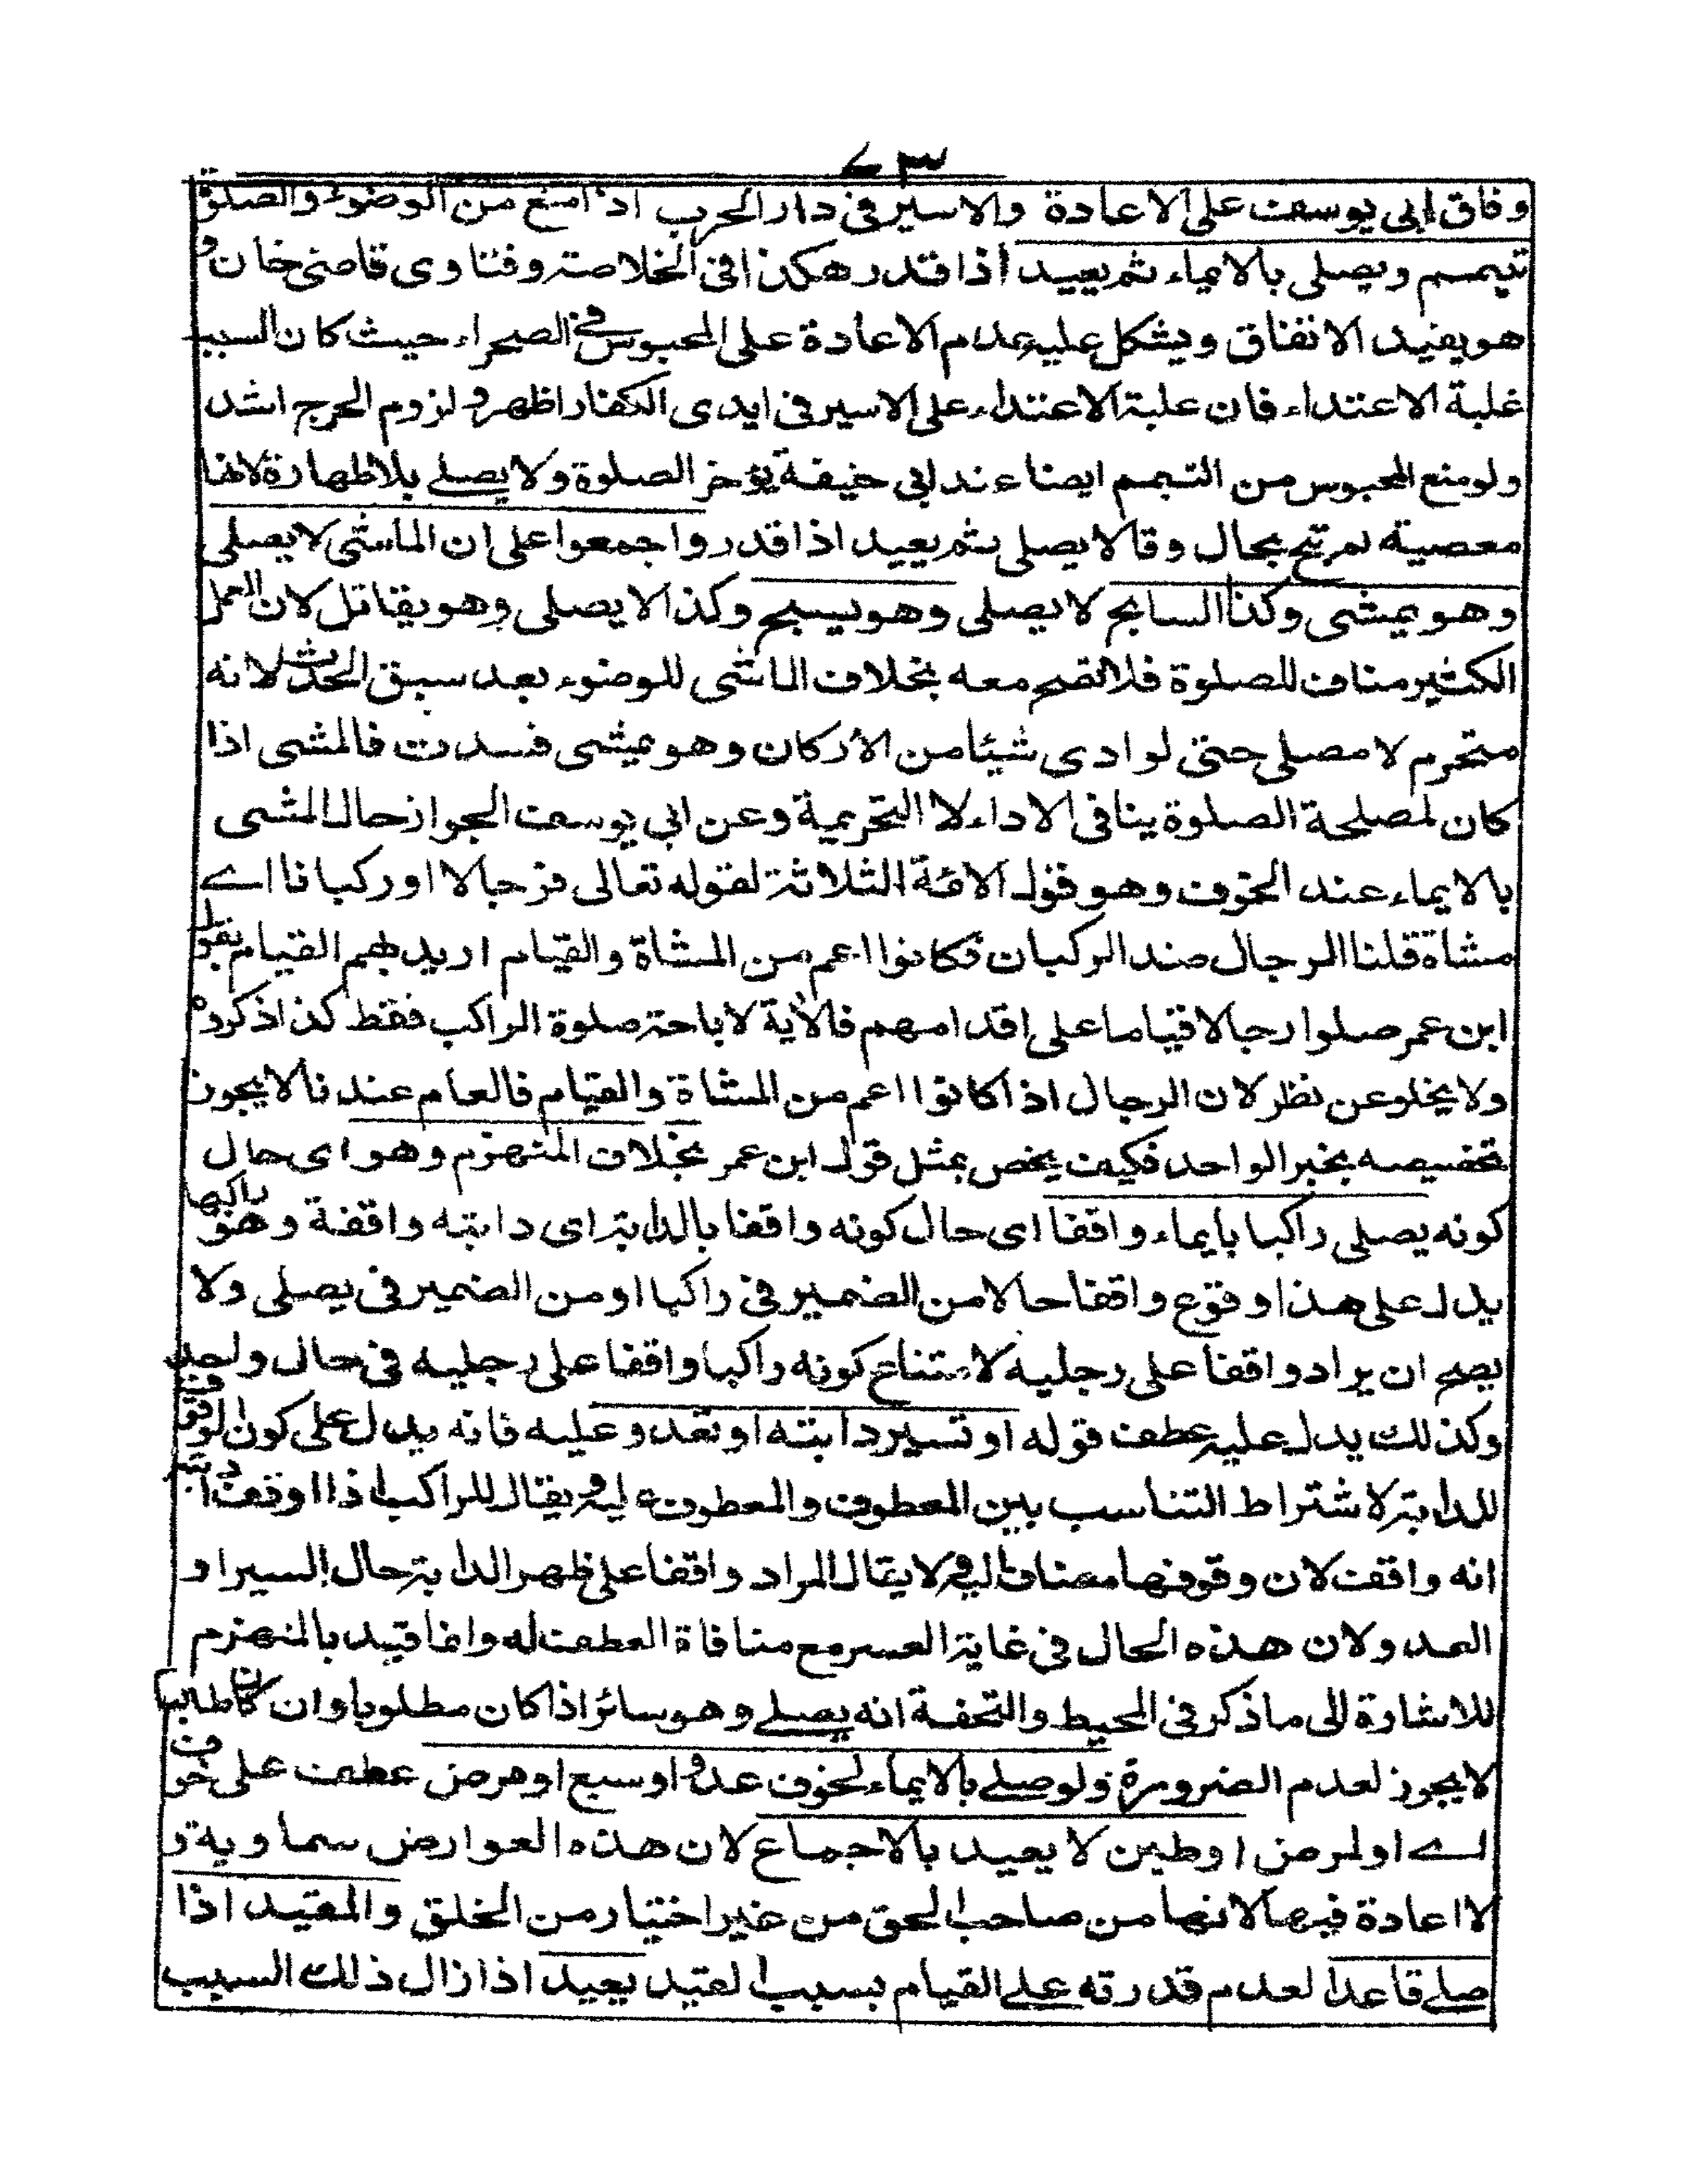 ٧٣
وفاق ابى يوسف على الاعادة والاسير فى دار الحرب اذا منع من الوضوء والصلوة
تيمم ويصلى بالايماء ثم يعيد اذا قدر هكذا فى الخلاصة وفتاوى قاضى خان و
هو يفيد الاتفاق ويشكل عليه عدم الاعادة على المحبوس فى الصحراء حيث كان السبب
غلبة الاعتداء فان غلبة الاعتداء على الاسير فى ايدى الكفار اظهر ولزوم الحرج اشد
ولو منع المحبوس من التيمم ايضا عند ابى حنيفة يؤخر الصلوة ولا يصلے بلا طهارة لانها
معصية لم تبح بحال وقالا يصلى ثم يعيد اذا قدر واجمعوا على ان الماشى لا يصلى
وهو يمشى وكذا السابح لا يصلى وهو يسبح وكذا لا يصلى وهو يقاتل لان العمل
الكثير مناف للصلوة فلا تصح معه بخلاف الماشى للوضوء بعد سبق الحدث لانه
متحرم لا مصلى حتى لو ادى شيئا من الاركان وهو يمشى فسدت فالمشى اذا
كان لمصلحة الصلوة ينافى الاداء لا التحريمية وعن ابى يوسف الجواز حال المشى
بالايماء عند الخوف وهو قول الائمة الثلاثة لقوله تعالى فرجالا او ركبانا اے
مشاة قلنا الرجال ضد الركبان فكانوا اعم من المشاة والقيام اريد بهم القيام بقول
ابن عمر صلوا رجالا قياما على اقدامهم فالآية لاباحة صلوة الراكب فقط كذا ذكره
ولا يخلو عن نظر لان الرجال اذا كانوا اعم من المشاة والقيام فالعام عندنا لا يجوز
تخصيصه بخبر الواحد فكيف يخص بمثل قول ابن عمر بخلاف المنهزم وهو اى حال
كونه يصلى راكبا بايماء واقفا اى حال كونه واقفا بالدابة اى دابته واقفة وهو راكبها
يدل على هذا وقوع واقفا حالا من الضمير فى راكبا او من الضمير فى يصلى ولا
يصح ان يراد واقفا على رجليه لامتناع كونه راكبا واقفا على رجليه فى حال واحد
وكذلك يدل عليه عطف قوله او تسير دابته او تعدو عليه فانه يدل على كون الوقوف
للدابة لاشتراط التناسب بين المعطوف والمعطوف عليه ويقال للراكب اذا اوقف دابته
انه واقف لان وقوفها مضاف اليه ولا يقال المراد واقفا على ظهر الدابة حال السير او
العدو لان هذه الحال فى غاية العسر مع منافاة العطف له وانما قيد بالمنهزم
للاشارة الى ما ذكر فى المحيط والتحفة انه يصلے وهو سائر اذا كان مطلوبا وان كان طالبا
لا يجوز لعدم الضرورة ولو صلے بالايماء لخوف عدو او سبع او مرض عطف على خوف
اے او لمرض او طين لا يعيد بالاجماع لان هذه العوارض سماوية و
لا اعادة فيها لانها من صاحب الحق من غير اختيار من الخلق والمقيد اذا
صلے قاعدا لعدم قدرته علے القيام بسبب القيد يعيد اذا زال ذلك السبب